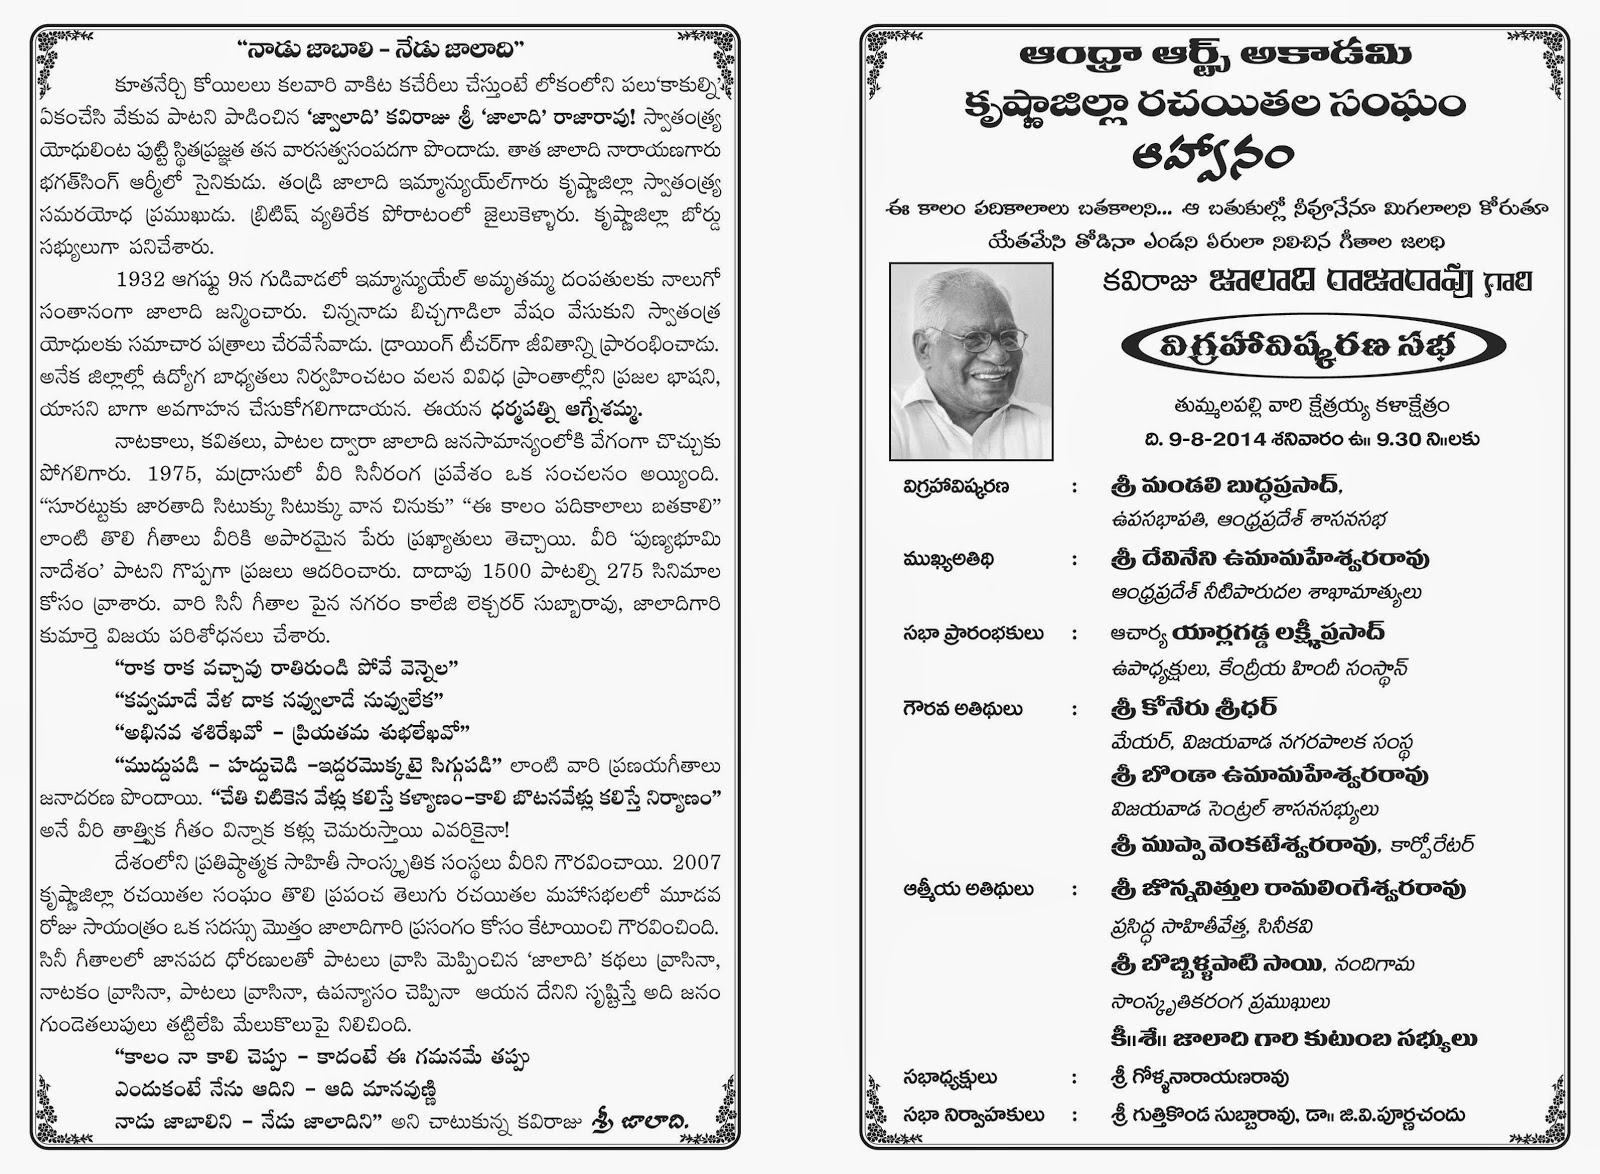 “నాడు జాబాలి – నేడు జాలాది”
కూతనేర్చి కోయిలలు కలవారి వాకిట కచేరీలు చేస్తుంటే లోకంలోని పలు‘కాకుల్ని’
ఏకంచేసి వేకువ పాటని పాడించిన ‘జ్వాలాది’ కవిరాజు శ్రీ ‘జాలాది’ రాజారావు! స్వాతంత్ర్య
యోధులింట పుట్టి స్థితప్రజ్ఞత తన వారసత్వసంపదగా పొందాడు. తాత జాలాది నారాయణగారు
భగత్‌సింగ్ ఆర్మీలో సైనికుడు. తండ్రి జాలాది ఇమ్మాన్యుయ్‌ల్‌గారు కృష్ణాజిల్లా స్వాతంత్ర్య
సమరయోధ ప్రముఖుడు. బ్రిటిష్ వ్యతిరేక పోరాటంలో జైలుకెళ్ళారు. కృష్ణాజిల్లా బోర్డు
సభ్యులుగా పనిచేశారు.
1932 ఆగష్టు 9న గుడివాడలో ఇమ్మాన్యుయేల్ అమృతమ్మ దంపతులకు నాలుగో
సంతానంగా జాలాది జన్మించారు. చిన్ననాడు బిచ్చగాడిలా వేషం వేసుకుని స్వాతంత్ర
యోధులకు సమాచార పత్రాలు చేరవేసేవాడు. డ్రాయింగ్ టీచర్‌గా జీవితాన్ని ప్రారంభించాడు.
అనేక జిల్లాల్లో ఉద్యోగ బాధ్యతలు నిర్వహించటం వలన వివిధ ప్రాంతాల్లోని ప్రజల భాషని,
యాసని బాగా అవగాహన చేసుకోగలిగాడాయన. ఈయన ధర్మపత్ని ఆగ్నేశమ్మ.
నాటకాలు, కవితలు, పాటల ద్వారా జాలాది జనసామాన్యంలోకి వేగంగా చొచ్చుకు
పోగలిగారు. 1975, మద్రాసులో వీరి సినీరంగ ప్రవేశం ఒక సంచలనం అయ్యింది.
“సూరట్టుకు జారతాది సిటుక్కు సిటుక్కు వాన చినుకు” “ఈ కాలం పదికాలాలు బతకాలి”
లాంటి తొలి గీతాలు వీరికి అపారమైన పేరు ప్రఖ్యాతులు తెచ్చాయి. వీరి ‘పుణ్యభూమి
నాదేశం’ పాటని గొప్పగా ప్రజలు ఆదరించారు. దాదాపు 1500 పాటల్ని 275 సినిమాల
కోసం వ్రాశారు. వారి సినీ గీతాల పైన నగరం కాలేజి లెక్చరర్ సుబ్బారావు, జాలాదిగారి
కుమార్తె విజయ పరిశోధనలు చేశారు.
“రాక రాక వచ్చావు రాతిరుండి పోవే వెన్నెల”
“కవ్వమాడే వేళ దాక నవ్వులాడే నువ్వులేక”
“అభినవ శశిరేఖవో – ప్రియతమ శుభలేఖవో”
“ముద్దుపడి – హద్దుచెడి –ఇద్దరమొక్కటై సిగ్గుపడి” లాంటి వారి ప్రణయగీతాలు
జనాదరణ పొందాయి. “చేతి చిటికెన వేళ్లు కలిస్తే కళ్యాణం–కాలి బొటనవేళ్లు కలిస్తే నిర్యాణం”
అనే వీరి తాత్త్విక గీతం విన్నాక కళ్లు చెమరుస్తాయి ఎవరికైనా!
దేశంలోని ప్రతిష్ఠాత్మక సాహితీ సాంస్కృతిక సంస్థలు వీరిని గౌరవించాయి. 2007
కృష్ణాజిల్లా రచయితల సంఘం తొలి ప్రపంచ తెలుగు రచయితల మహాసభలలో మూడవ
రోజు సాయంత్రం ఒక సదస్సు మొత్తం జాలాదిగారి ప్రసంగం కోసం కేటాయించి గౌరవించింది.
సినీ గీతాలలో జానపద ధోరణులతో పాటలు వ్రాసి మెప్పించిన ‘జాలాది’ కథలు వ్రాసినా,
నాటకం వ్రాసినా, పాటలు వ్రాసినా, ఉపన్యాసం చెప్పినా ఆయన దేనిని సృష్టిస్తే అది జనం
గుండెతలుపులు తట్టిలేపి మేలుకొలుపై నిలిచింది.
“కాలం నా కాలి చెప్పు – కాదంటే ఈ గమనమే తప్పు
ఎందుకంటే నేను ఆదిని – ఆది మానవుణ్ణి
నాడు జాబాలిని – నేడు జాలాదిని” అని చాటుకున్న కవిరాజు శ్రీ జాలాది.
ఆంధ్రా ఆర్ట్స్ అకాడమి
కృష్ణాజిల్లా రచయితల సంఘం
ఆహ్వానం
ఈ కాలం పదికాలాలు బతకాలని... ఆ బతుకుల్లో నీవూనేనూ మిగలాలని కోరుతూ
యేతమేసి తోడినా ఎండని ఏరులా నిలిచిన గీతాల జలధి
కవిరాజు జాలాది రాజారావు గారి
విగ్రహావిష్కరణ సభ
తుమ్మలపల్లి వారి క్షేత్రయ్య కళాక్షేత్రం
ది. 9-8-2014 శనివారం ఉ॥ 9.30 ని॥లకు
విగ్రహావిష్కరణ : శ్రీ మండలి బుద్ధప్రసాద్,
ఉపసభాపతి, ఆంధ్రప్రదేశ్ శాసనసభ
ముఖ్యఅతిథి : శ్రీ దేవినేని ఉమామహేశ్వరరావు
ఆంధ్రప్రదేశ్ నీటిపారుదల శాఖామాత్యులు
సభా ప్రారంభకులు : ఆచార్య యార్లగడ్డ లక్ష్మీప్రసాద్
ఉపాధ్యక్షులు, కేంద్రీయ హిందీ సంస్థాన్
గౌరవ అతిథులు : శ్రీ కోనేరు శ్రీధర్
మేయర్, విజయవాడ నగరపాలక సంస్థ
శ్రీ బొండా ఉమామహేశ్వరరావు
విజయవాడ సెంట్రల్ శాసనసభ్యులు
శ్రీ ముప్పా వెంకటేశ్వరరావు, కార్పోరేటర్
ఆత్మీయ అతిథులు : శ్రీ జొన్నవిత్తుల రామలింగేశ్వరరావు
ప్రసిద్ధ సాహితీవేత్త, సినీకవి
శ్రీ బొబ్బిళ్ళపాటి సాయి, నందిగామ
సాంస్కృతికరంగ ప్రముఖులు
కీ॥శే॥ జాలాది గారి కుటుంబ సభ్యులు
సభాధ్యక్షులు : శ్రీ గోళ్ళనారాయణరావు
సభా నిర్వాహకులు : శ్రీ గుత్తికొండ సుబ్బారావు, డా॥ జి.వి.పూర్ణచందు